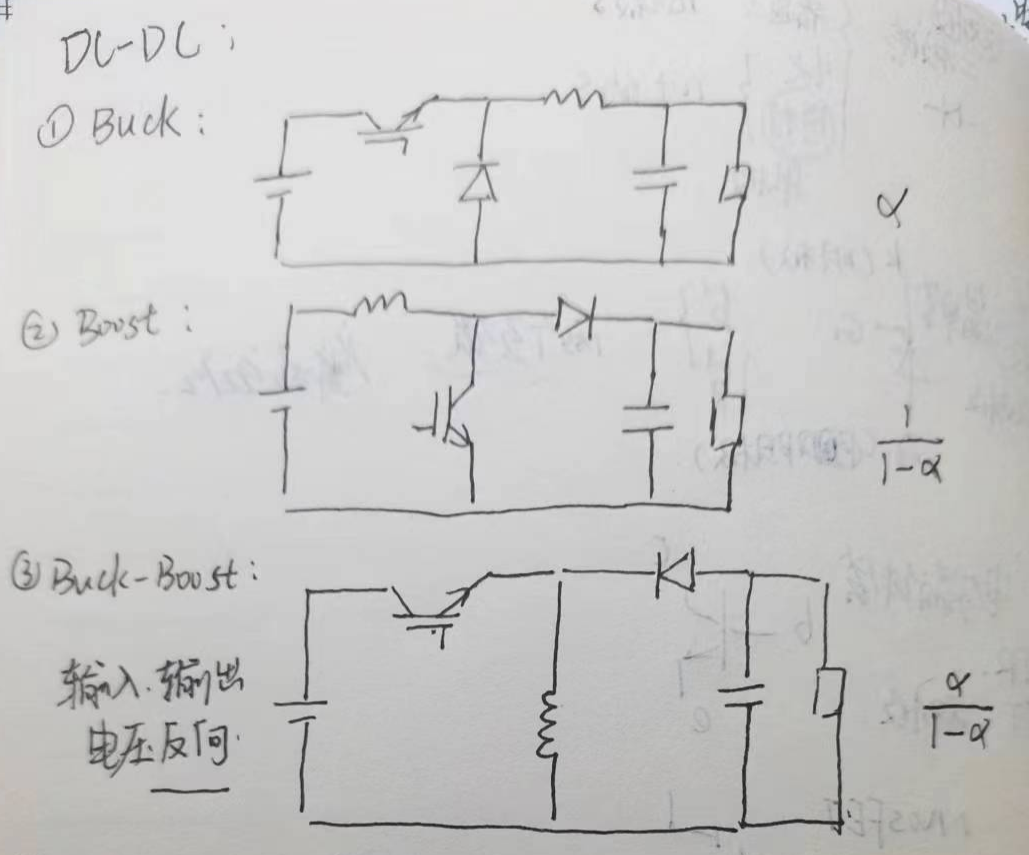 DC-DC:
① Buck:
α
② Boost:
1/(1-α)
③ Buck-Boost:
输入.输出
电压反向.
α/(1-α)